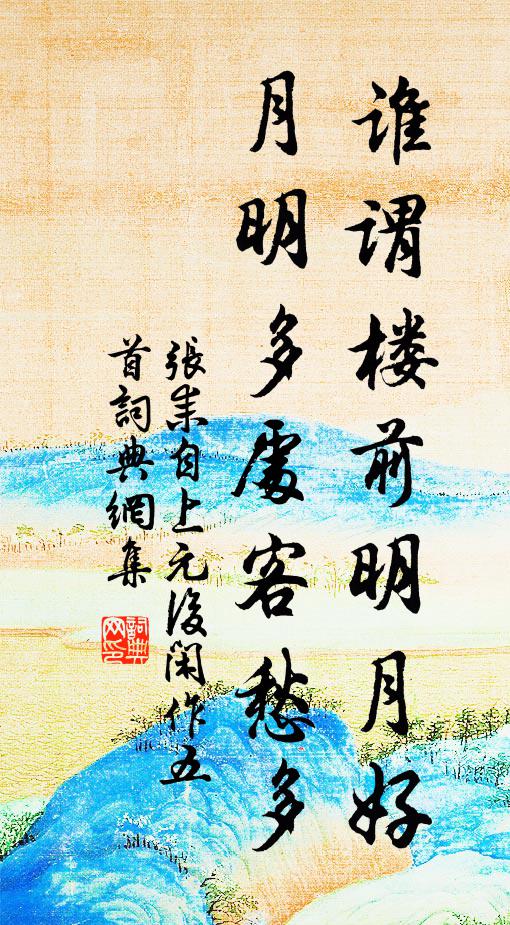 谁谓楼前明月好
月明多處客愁多
張耒自上元後閑作五
首詞典網集
詞典網印